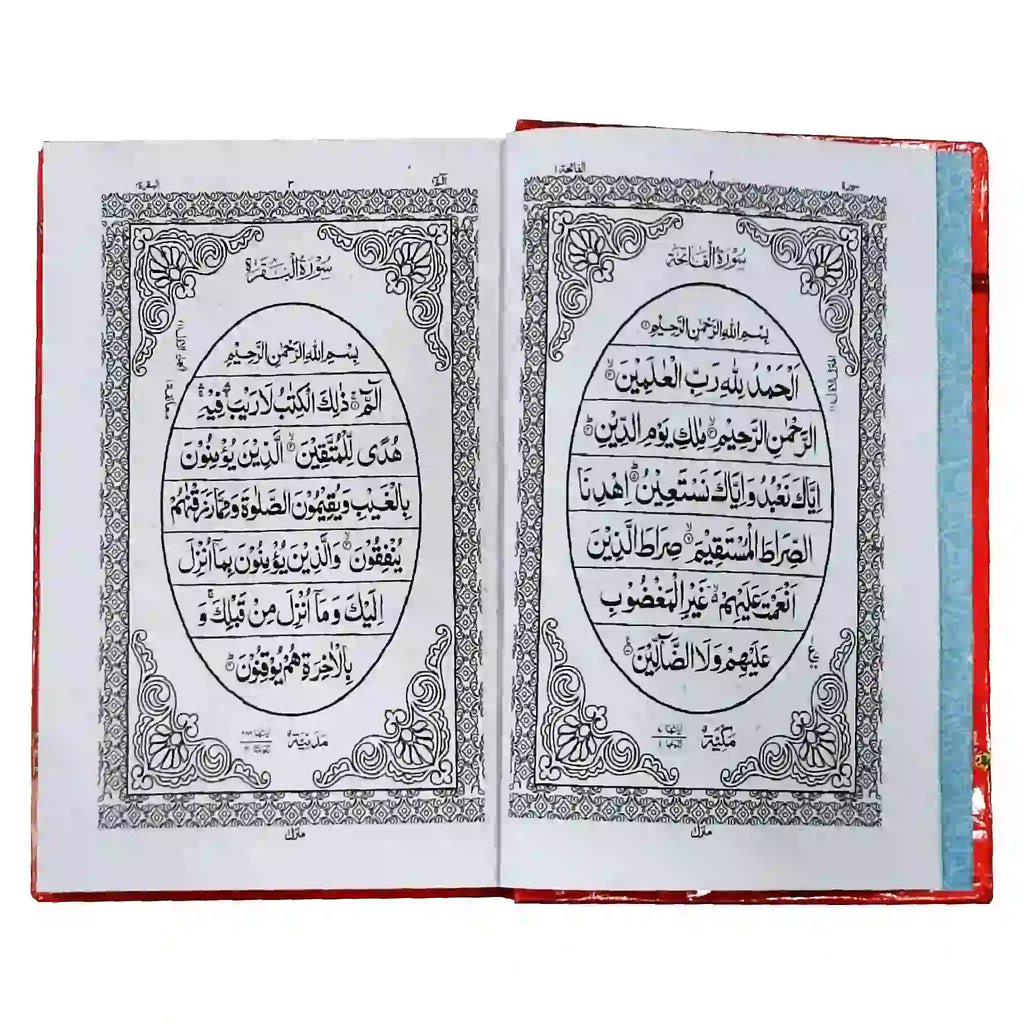 سورة
٢
الفاتحة ١
سُوْرَةُ الْفَاتِحَةِ
بِسْمِ اللهِ الرَّحْمٰنِ الرَّحِيْمِ ۝١
اَلْحَمْدُ لِلّٰهِ رَبِّ الْعٰلَمِيْنَ ۝٢
الرَّحْمٰنِ الرَّحِيْمِ ۝٣ مٰلِكِ يَوْمِ الدِّيْنِ ۝٤
اِيَّاكَ نَعْبُدُ وَاِيَّاكَ نَسْتَعِيْنُ ۝٥ اِهْدِنَا
الصِّرَاطَ الْمُسْتَقِيْمَ ۝٦ صِرَاطَ الَّذِيْنَ
اَنْعَمْتَ عَلَيْهِمْ ۙ غَيْرِ الْمَغْضُوْبِ
عَلَيْهِمْ وَلَا الضَّآلِّيْنَ ۝٧
مَكِّيَّةٌ
منزل
الٓمّٓ ١
٣
البقرة ٢
سُوْرَةُ الْبَقَرَةِ
بِسْمِ اللهِ الرَّحْمٰنِ الرَّحِيْمِ
الٓمّٓ ۝١ ذٰلِكَ الْكِتٰبُ لَا رَيْبَ ۛ فِيْهِ ۛ
هُدًى لِّلْمُتَّقِيْنَ ۝٢ الَّذِيْنَ يُؤْمِنُوْنَ
بِالْغَيْبِ وَيُقِيْمُوْنَ الصَّلٰوةَ وَمِمَّا رَزَقْنٰهُمْ
يُنْفِقُوْنَ ۝٣ وَالَّذِيْنَ يُؤْمِنُوْنَ بِمَآ اُنْزِلَ
اِلَيْكَ وَمَآ اُنْزِلَ مِنْ قَبْلِكَ ۚ وَ
بِالْاٰخِرَةِ هُمْ يُوْقِنُوْنَ ۝٤
مَدَنِيَّةٌ
منزل